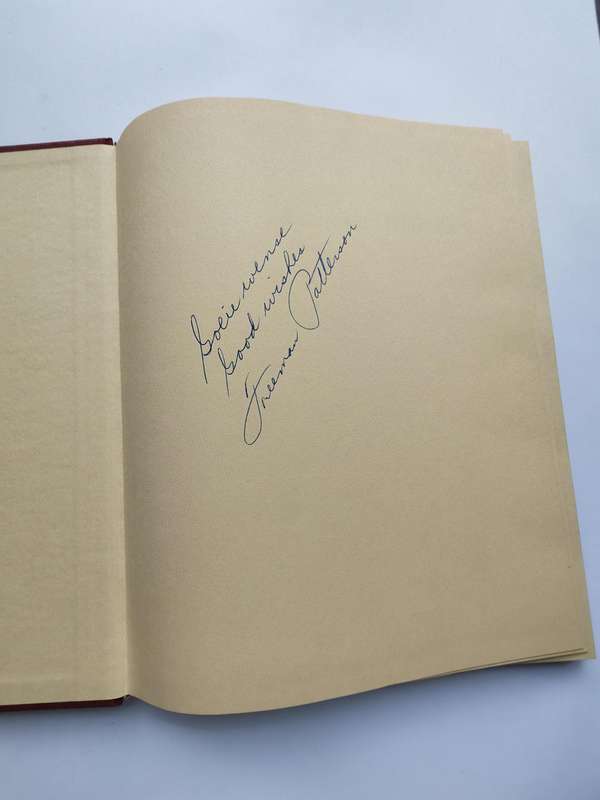 Goeie wense
Good wishes
Freeman Patterson